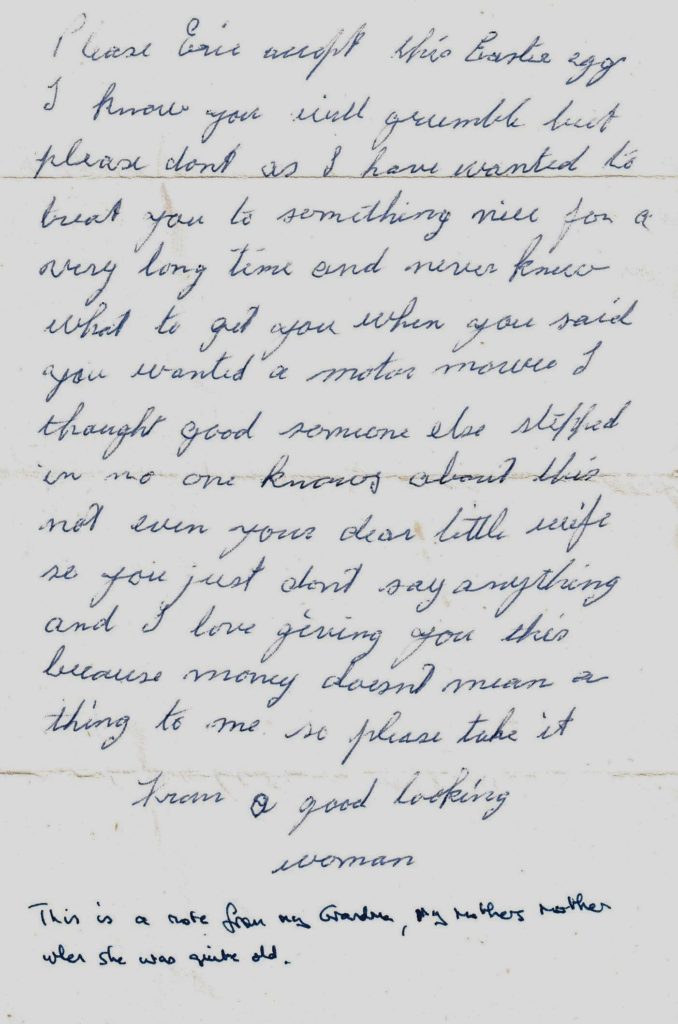 Please Eric accept this Easter egg
I know you will grumble but
please dont as I have wanted to
treat you to something nice for a
very long time and never knew
what to get you when you said
you wanted a motor mower I
thought good someone else stepped
in no one knows about this
not even your dear little wife
so you just dont say anything
and I love giving you this
because money doesnt mean a
thing to me so please take it
From a good looking
woman
This is a note from my Grandma, my mothers mother
when she was quite old.